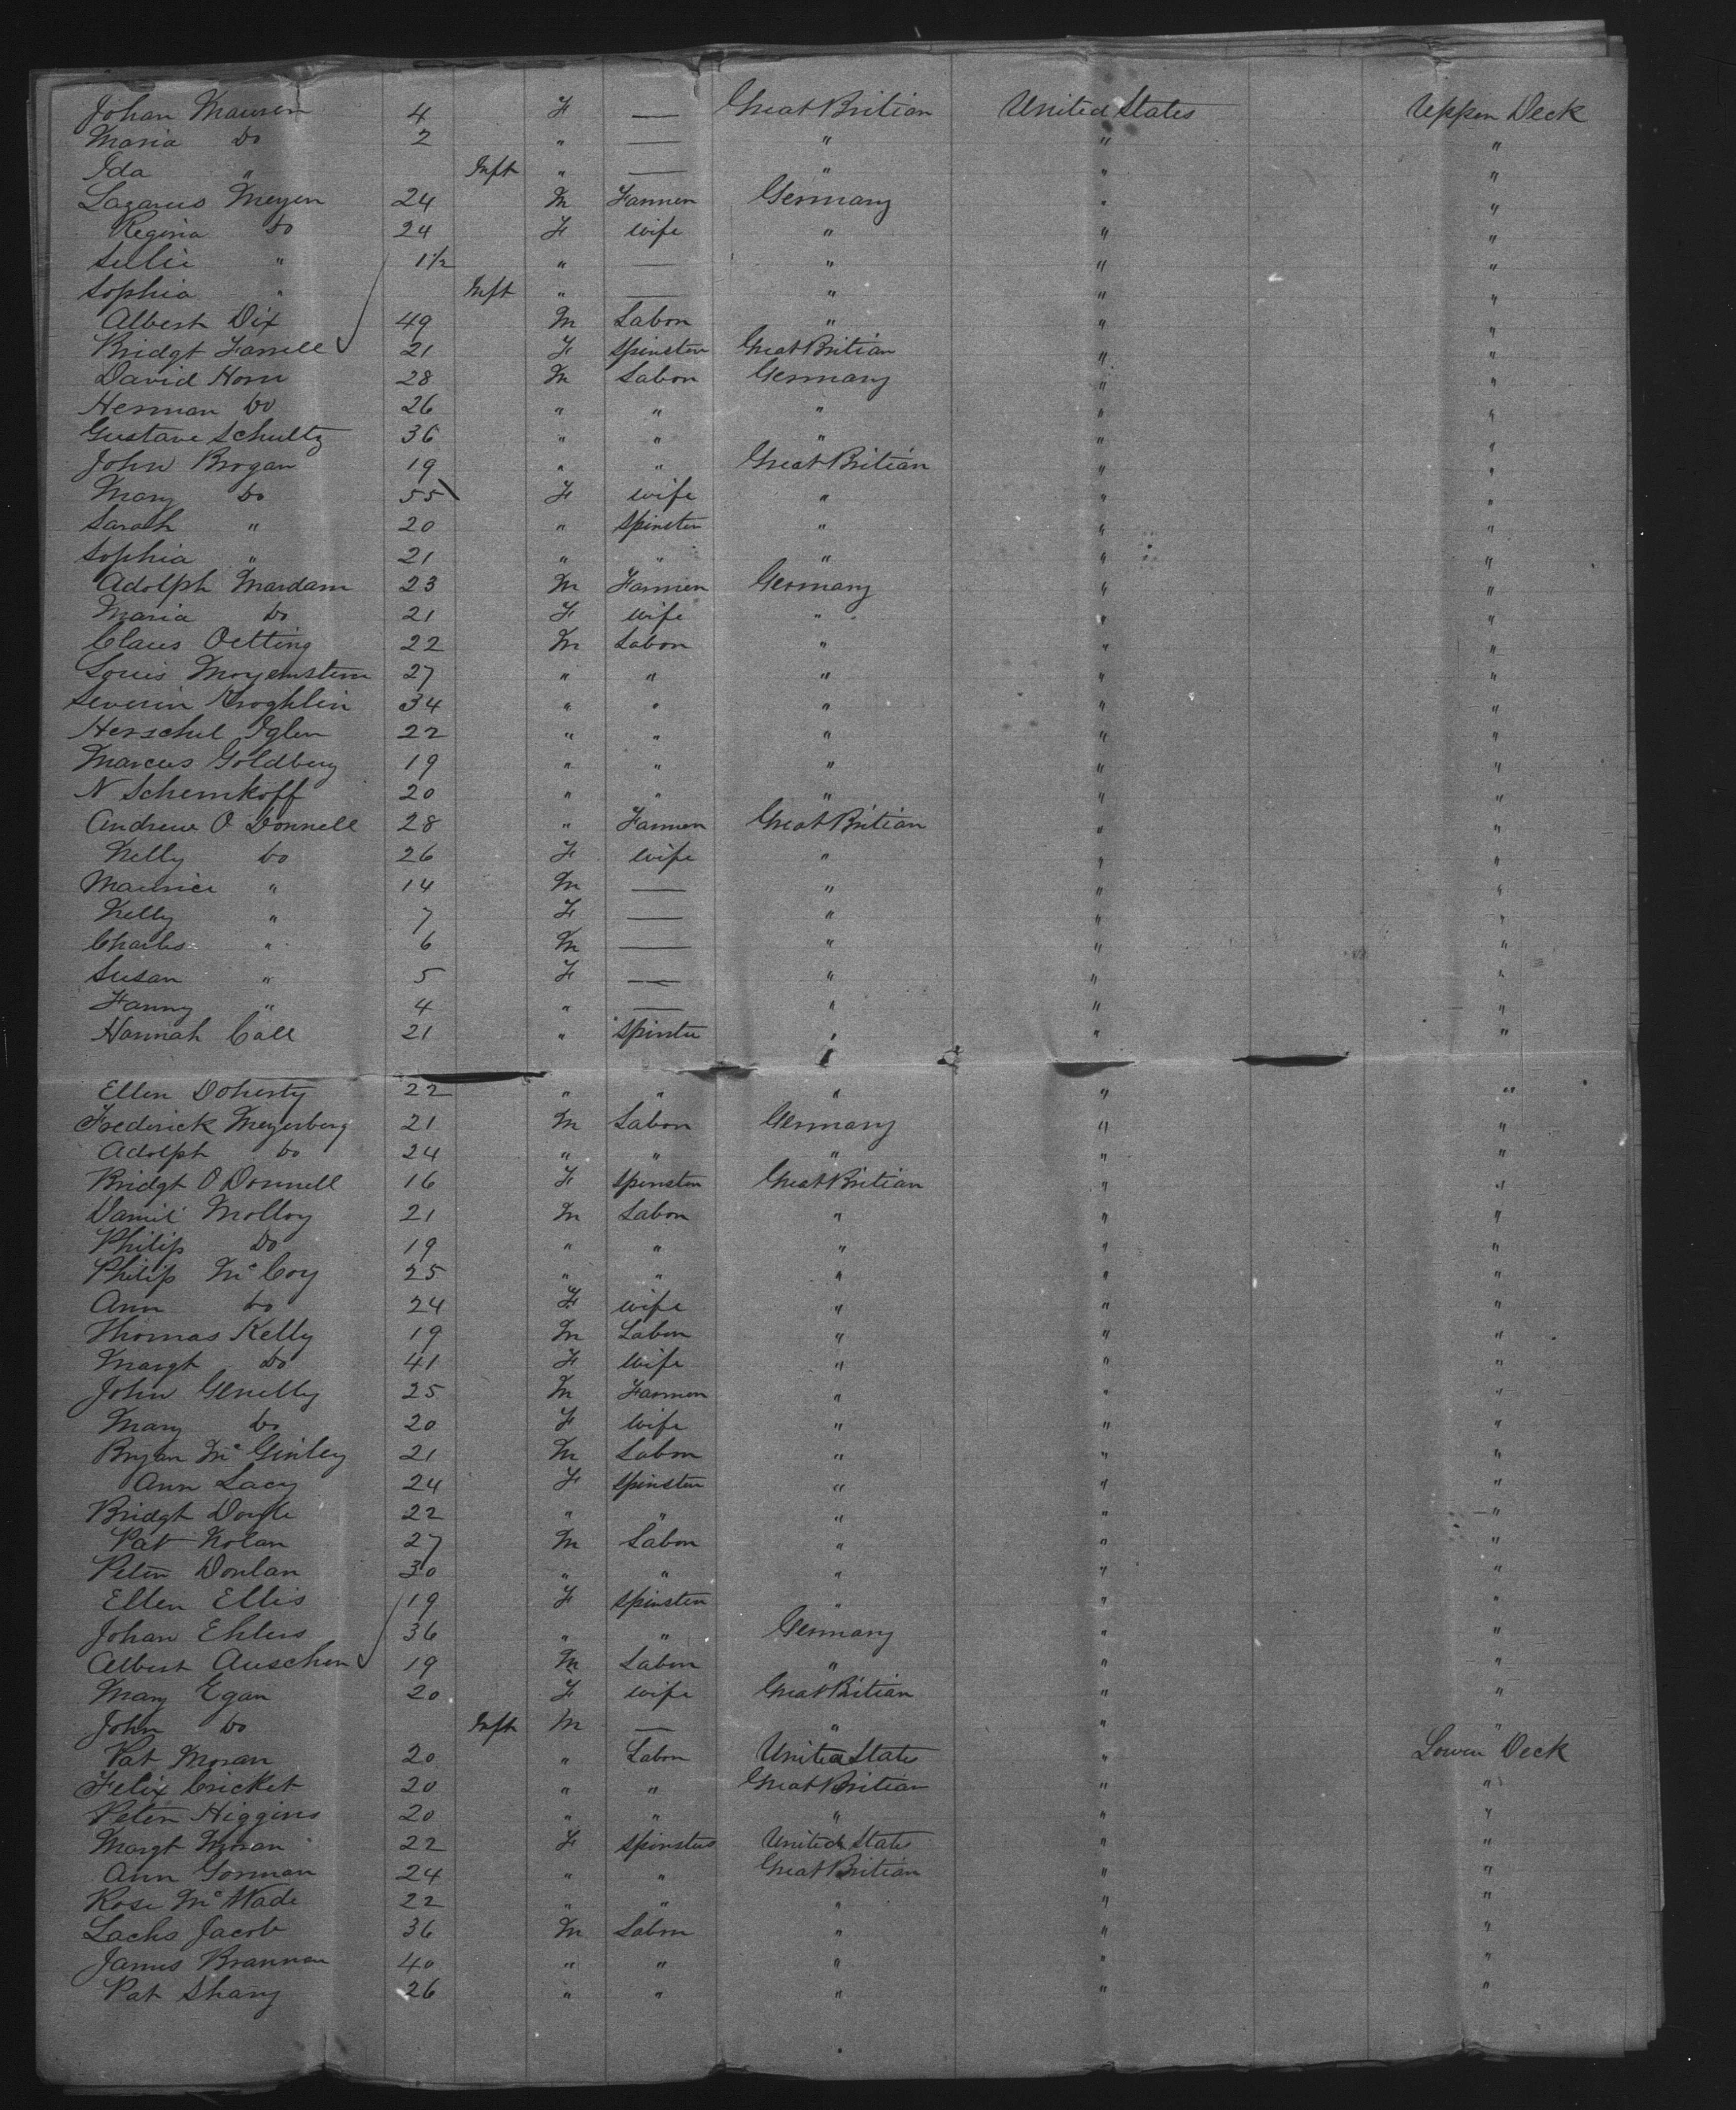 Johan Mauren 4 F — Great Britian United States Upper Deck
Maria Do 2 " — " " "
Ida " Inft " — " " "
Lazarus Meyer 24 M Farmer Germany " "
Regina Do 24 F wife " " "
Lillie " 1½ " — " " "
Sophia " Inft " — " " "
Albert Dix 49 M Labor " " "
Bridgt Farrell 21 F Spinster Great Britian " "
David Horn 28 M Labor Germany " "
Herman Do 26 " " " " "
Gustave Schultz 36 " " " " "
John Brogan 19 " " Great Britian " "
Mary Do 55 F wife " " "
Sarah " 20 " Spinster " " "
Sophia " 21 " " " " "
Adolph Mardam 23 M Farmer Germany " "
Maria Do 21 F wife " " "
Claus Oetting 22 M Labor " " "
Louis Moryenstern 27 " " " " "
Severin 34 " " " " "
Herschel Igler 22 " " " " "
Marcus Goldberg 19 " " " " "
N Schemkoff 20 " " " " "
Andrew O Donnell 28 " Farmer Great Britian " "
Nelly Do 26 F wife " " "
Maurice " 14 M — " " "
Nelly " 7 F — " " "
Charles " 6 M — " " "
Susan " 5 F — " " "
Fanny " 4 " — " " "
Hannah Call 21 " Spinster " " "
Ellen Doherty 22 " " " " "
Frederick Meyerberg 21 M Labor Germany " "
Adolph Do 24 " " " " "
Bridgt O Donnell 16 F Spinster Great Britian " "
Daniel Molloy 21 M Labor " " "
Philip Do 19 " " " " "
Philip Mc Coy 25 " " " " "
Ann Do 24 F wife " " "
Thomas Kelly 19 M Labor " " "
Margt Do 41 F wife " " "
John Glenelly 25 M Farmer " " "
Mary Do 20 F wife " " "
Bryan Mc Ginley 21 M Labor " " "
Ann Lacy 24 F Spinster " " "
Bridgt Doyle 22 " " " " "
Pat Nolan 27 M Labor " " "
Peter Donlan 30 " " " " "
Ellen Ellis 19 F Spinster " " "
Johan Ehlers 36 " " Germany " "
Albert Auschen 19 M Labor " " "
Mary Egan 20 F wife Great Britian " "
John Do Inft M — " " "
Pat Moran 20 " Labor United States " Lower Deck
Felix Cricket 20 " " Great Britian " "
Peter Higgins 20 " " " " "
Margt Moran 22 F Spinster United States " "
Ann Gorman 24 " " Great Britian " "
Rose Mc Wade 22 " " " " "
Lachs Jacob 36 M Labor " " "
James Brannan 40 " " " " "
Pat Shany 26 " " " " "